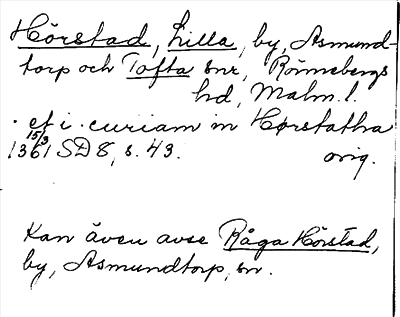 Hörstad, Lilla, by, Asmund-
torp och Tofta snr, Rönnebergs
hd, Malm. l.
. et i . curiam in Hørstatha
15/3
1361 SD 8, s. 43. orig.
Kan även avse Råga Hörstad,
by, Asmundtorp, sn.